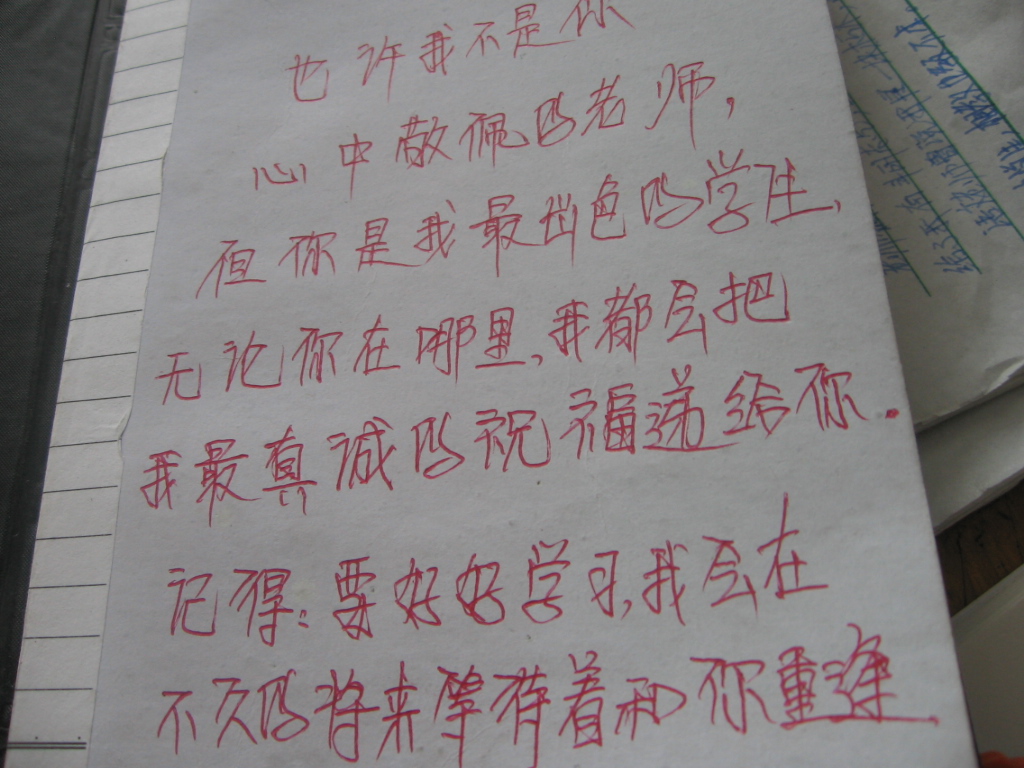 也许我不是你
心中敬佩的老师，
但你是我最出色的学生，
无论你在哪里，我都会把
我最真诚的祝福递给你．
记得：要好好学习，我会在
不久的将来等待着和你重逢．